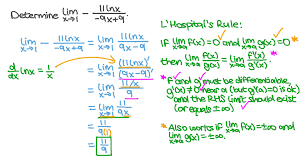 Determine lim x→1 - 11lnx / -9x+9.
lim x→1 - 11lnx / -9x+9 = lim x→1 11lnx / 9x-9
d/dx lnx = 1/x
= lim x→1 (11lnx)' / (9x-9)'
= lim x→1 11/x / 9
= lim x→1 11 / 9x
= 11 / 9(1)
= 11 / 9
L'Hospital's Rule:
If lim x→1 f(x)=0 and lim x→1 g(x)=0 *
then lim x→1 f(x)/g(x) = lim x→1 f'(x)/g'(x). *
* f and g must be differentiable,
g'(x)≠0 near a (but g'(a)=0 is ok)
and the RHS limit should exist
(or equals ±∞)
* Also works if lim f(x)=±∞ and
lim g(x)=±∞.